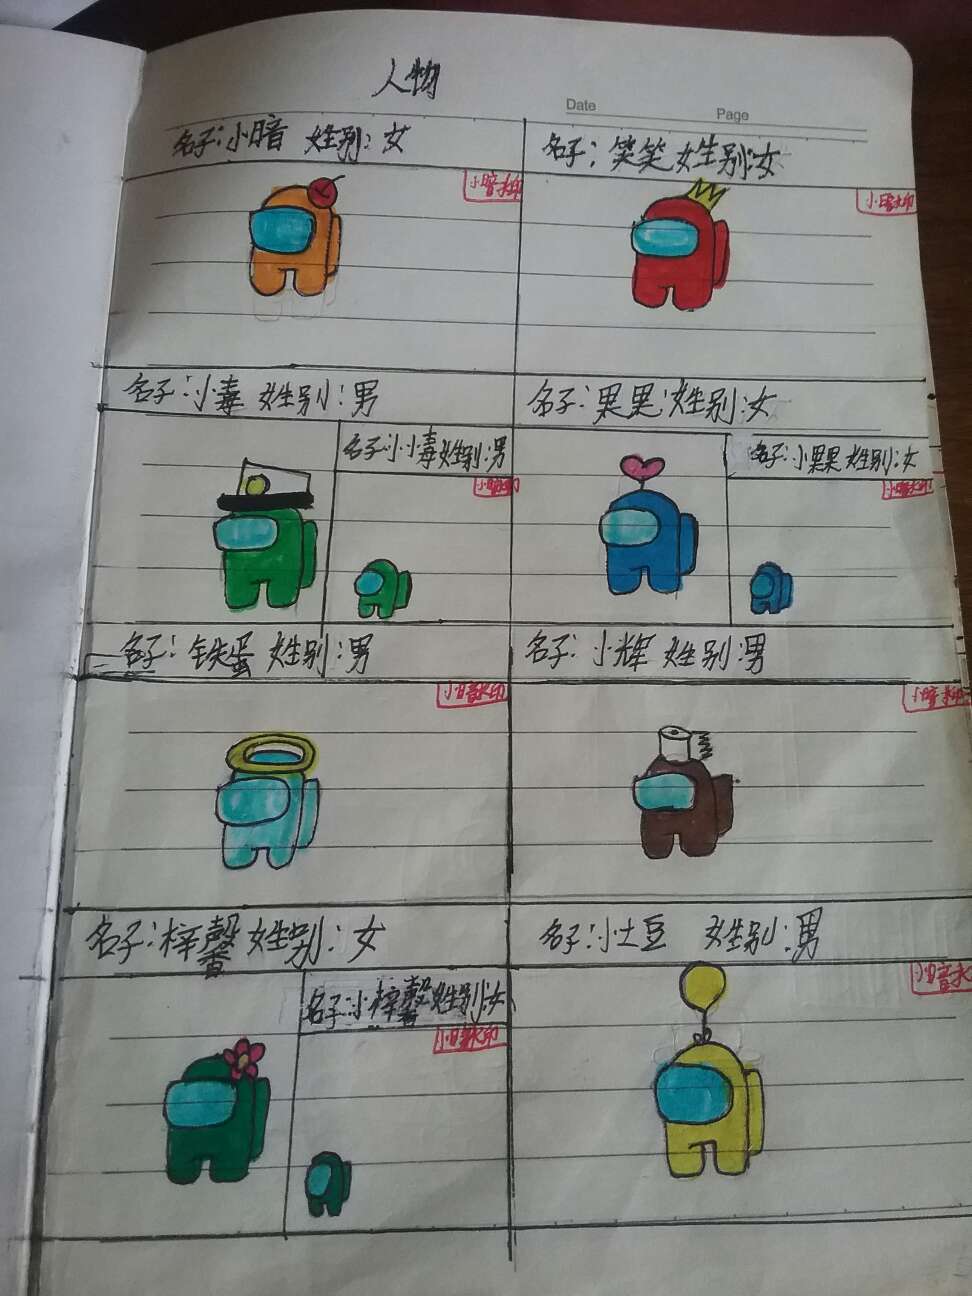 人物
Date
Page
名子:小暗 姓别:女
名子:笑笑 姓别:女
小暗水印
小暗水印
名子:小毒 姓别:男
名子:果果 姓别:女
名子:小小毒 姓别:男
名子:小果果 姓别:女
小暗水印
小暗水印
名子:铁蛋 姓别:男
名子:小辉 姓别:男
小暗水印
小暗水印
名子:梓馨 姓别:女
名子:小土豆 姓别:男
名子:小梓馨 姓别:女
小暗水
小暗水印